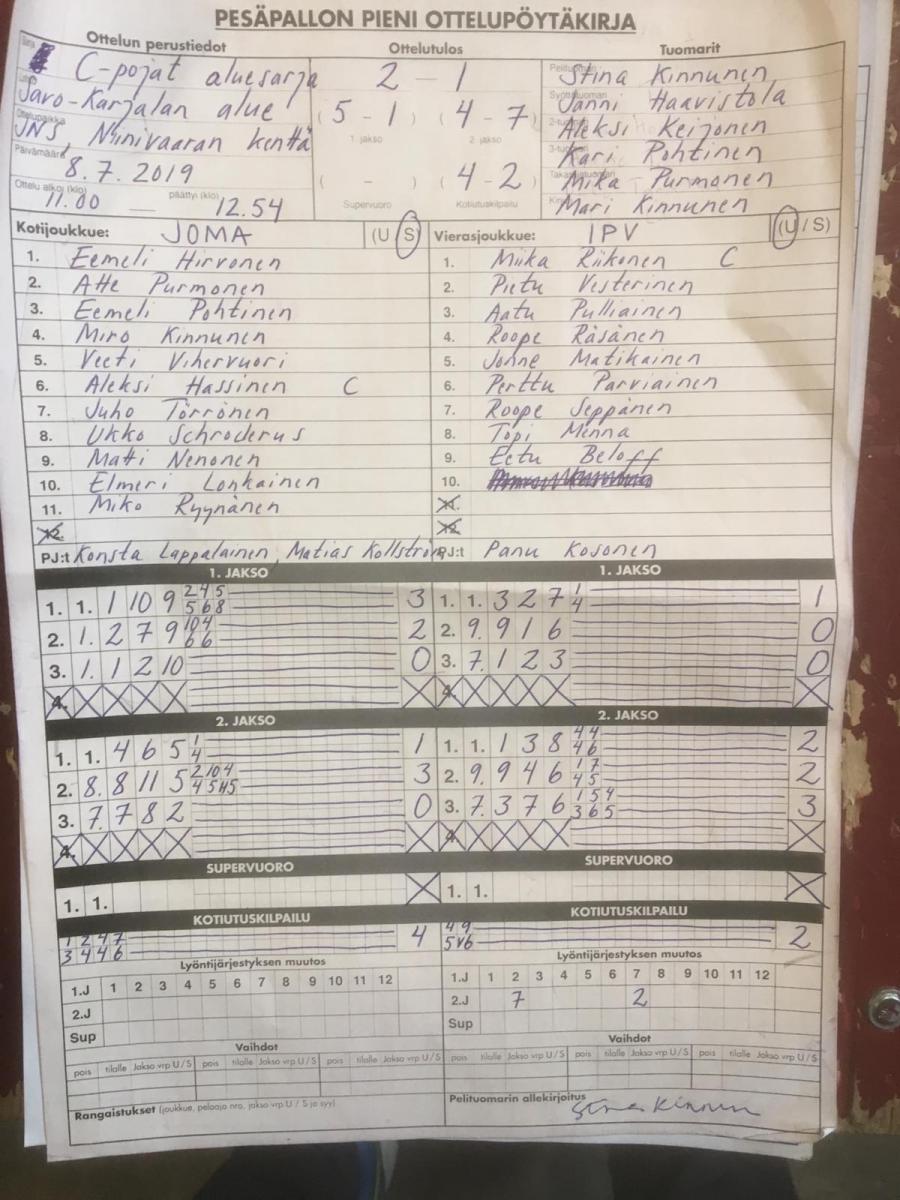 PESÄPALLON PIENI OTTELUPÖYTÄKIRJA
Ottelun perustiedot
Ottelutulos
Tuomarit
C-pojat aluesarja
Savo-Karjalan alue
Ottelupaikka JNS, Niinivaaran kenttä
Päivämäärä 8.7.2019
Ottelu alkoi (klo) päättyi (klo)
11.00 — 12.54
2 - 1
(5 - 1) (4 - 7)
1. jakso 2. jakso
( - ) (4 - 2)
Supervuoro Kotiutuskilpailu
Pelituomari Stina Kinnunen
Syöttötuomari Janni Haavistola
2-tuomari Aleksi Keijonen
3-tuomari Kari Pohtinen
Takatuomari Mika Purmonen
Mari Kinnunen
Kotijoukkue: JOMA (U S)
1. Eemeli Hirvonen
2. Atte Purmonen
3. Eemeli Pohtinen
4. Miro Kinnunen
5. Veeti Vihervuori
6. Aleksi Hassinen C
7. Juho Törrönen
8. Ukko Schroderus
9. Matti Nenonen
10. Elmeri Lonkainen
11. Miko Ryynänen
12.
PJ:t Konsta Lappalainen, Matias Kollström
Vierasjoukkue: IPV (U / S)
1. Miika Riikonen C
2. Pietu Vesterinen
3. Aatu Pulliainen
4. Roope Räsänen
5. Jonne Matikainen
6. Perttu Parviainen
7. Roope Seppänen
8. Topi Menna
9. Eetu Beloff
10.
11.
12.
PJ:t Panu Kosonen
1. JAKSO
1. 1. 1 10 9 2 4 5 3
5 6 8
2. 1. 2 7 9 10 4 2
6 6
3. 1. 1 2 10 0
4.
1. JAKSO
1. 1. 3 2 7 1 1
4
2. 9. 9 1 6 0
3. 7. 1 2 3 0
4.
2. JAKSO
1. 1. 4 6 5 1 1
4
2. 8. 8 11 5 2 10 4 3
3. 7. 7 8 2 0
4.
2. JAKSO
1. 1. 1 3 8 4 4 2
4 6
2. 9. 9 4 6 1 7 2
4 5
3. 7. 3 7 6 1 5 4 3
3 6 5
4.
SUPERVUORO
1. 1.
SUPERVUORO
1. 1.
KOTIUTUSKILPAILU
1 2 4 7 4
3 4 4 6
KOTIUTUSKILPAILU
4 9 2
Lyöntijärjestyksen muutos
1.J 1 2 3 4 5 6 7 8 9 10 11 12
2.J
Sup
Lyöntijärjestyksen muutos
1.J 1 2 3 4 5 6 7 8 9 10 11 12
2.J 7 2
Sup
Vaihdot
pois tilalle Jakso vrp U/S pois tilalle Jakso vrp U/S pois tilalle Jakso vrp U/S
Vaihdot
pois tilalle Jakso vrp U/S pois tilalle Jakso vrp U/S pois tilalle Jakso vrp U/S
Rangaistukset (joukkue, pelaaja nro, jakso vrp U / S ja syy)
Pelituomarin allekirjoitus
Stina Kinnunen